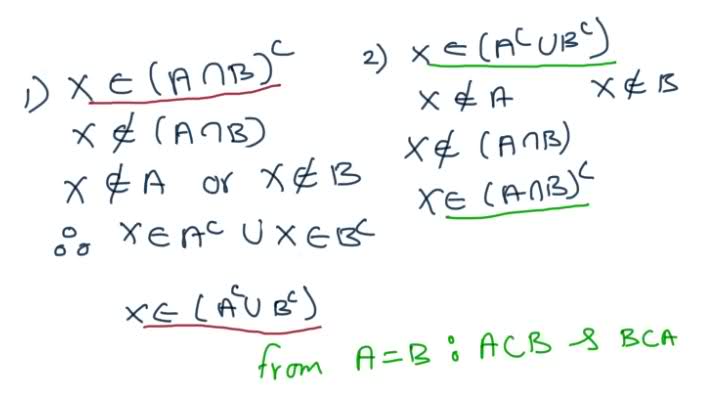 1) X ∈ (A∩B)ᶜ
X ∉ (A∩B)
X ∉ A or X ∉ B
∴ X ∈ Aᶜ ∪ X ∈ Bᶜ
X ∈ (Aᶜ∪ Bᶜ)
2) X ∈ (Aᶜ∪Bᶜ)
X ∉ A X ∉ B
X ∉ (A∩B)
X ∈ (A∩B)ᶜ
from A=B : A⊂B & B⊂A